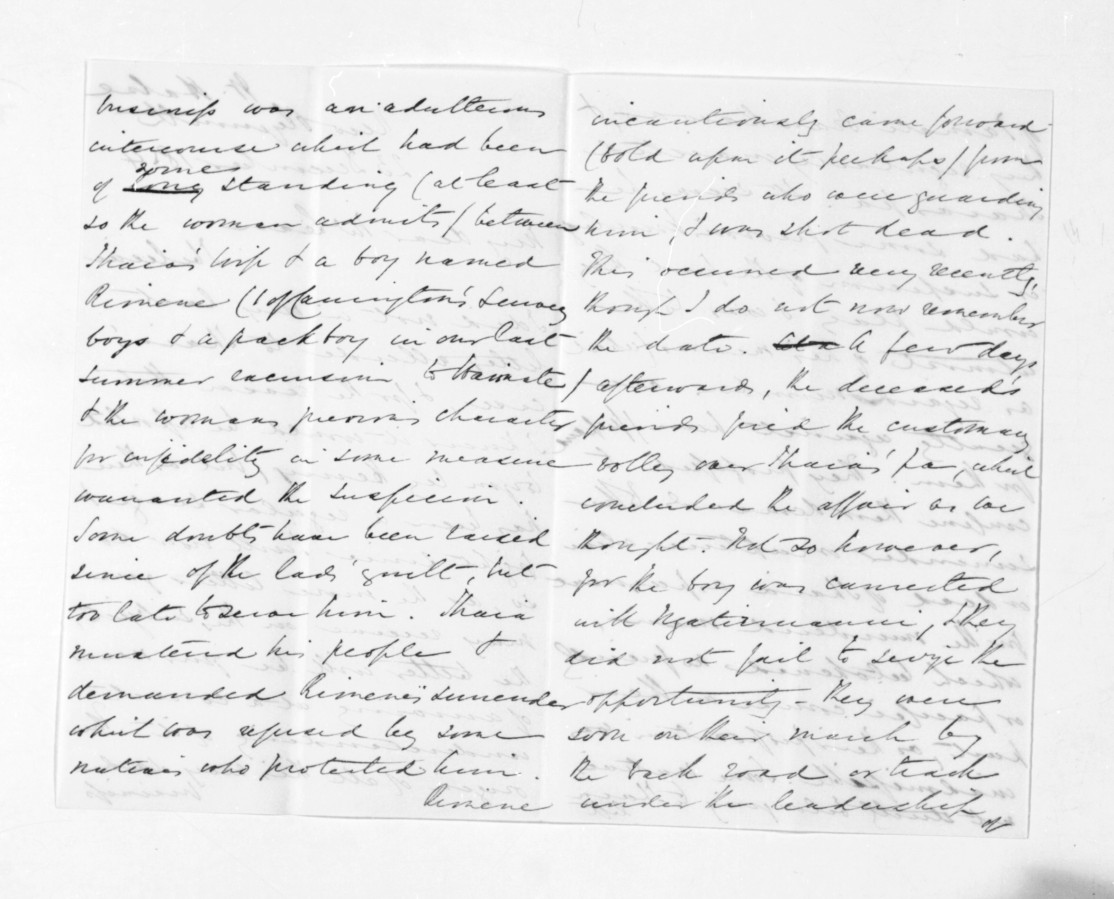 business was an adulterous
intercourse which had been
some
of long standing (at least
so the woman admits) between
Ihaia's wife & a boy named
Rimene (1 of Carrington's Survey
boys & a pack boy in our last
summer excursion to Waimate)
& the womans previous character
for infidelity in some measure
warranted the suspicion.
Some doubts have been raised
since of the lads' guilt, but
too late to save him. Ihaia
mustered his people &
demanded Rimene's surrender
which was refused by some
natives who protected him.
Rimene
incautiously came forward
(told upon it perhaps) from
the friends who were guarding
him, & was shot dead.
This occurred very recently,
though I do not now remember
the date. A few days
afterwards, the deceased's
friends fired the customary
volley over Ihaia's pa, which
concluded the affair as we
thought. Not so however,
for the boy was connected
with Ngatiruanui, & they
did not fail to seize the
opportunity - they were
soon on their march by
the back road or track
under the leadership of